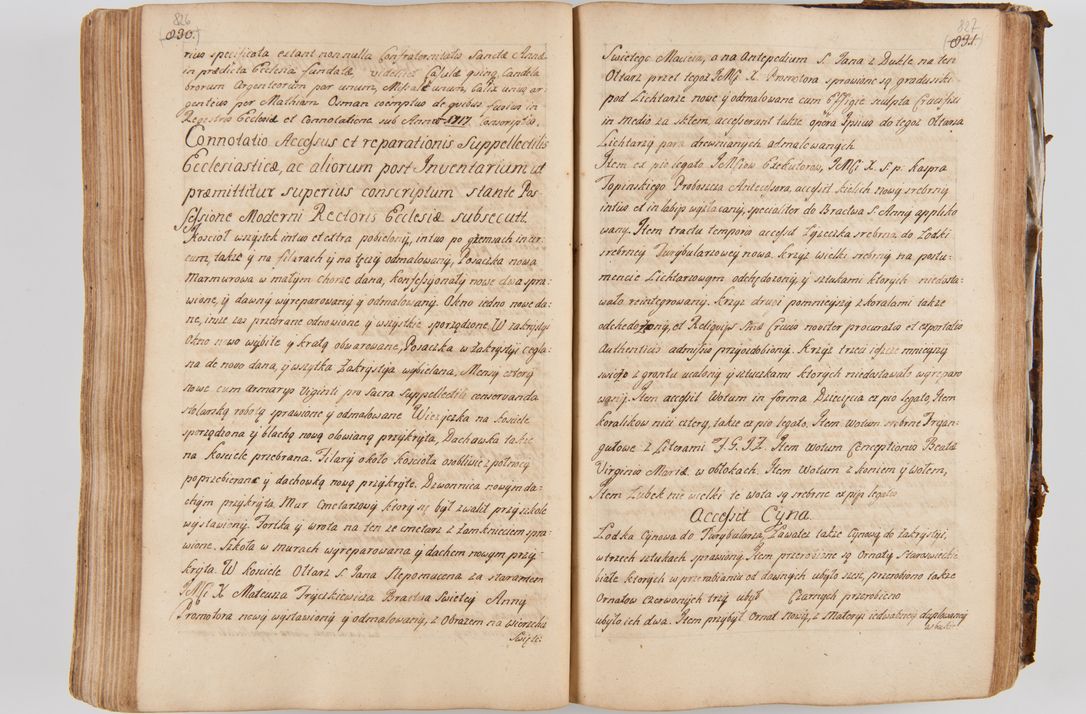 826
(830.)
rius specificata extant nonnulla Confraternitatis Sanctæ Annæ
in prædicta Ecclesia fundatæ, videlicet Casulæ quinq; Candela
brorum Argenteorum par unum, Missale unum, Calix unus ar
genteus per Mathiam Osman coemptus de quibus fusius in
Regestro Ecclesiæ et Connotatione sub Anno 1717 conscriptis.
Connotatio Accessus et reparationis Suppellectilis
Ecclesiasticæ, ac aliorum post Inventarium ut
præmittitur superius conscriptum stante Pos-
sessione Moderni Rectoris Ecclesiæ subsecuti.
Kosciół wszystek intus et extra pobielony, intus po gzemsach incir
cum, także y na filarach y na tęczy odmalowany, Posaczka nowa
Marmurowa w małym chorze dana, konfessyonały nowe dwa spra-
wione, y dawny wyreparowany y odmalowany. Okno iedno nowe da-
ne, insze zas przebrane odnowione y wszystkie sporządzone. W zakrystyi
Okno nowo wybite y kratą obwarowane, Posaczka w zakrystyi cegla-
na de novo dana, y wszytka Zakrystya wybielana, Mensy cztery
nowe cum Armaryo Viginti pro Sacra Suppellectili conservanda
stolarską robotą sprawione y odmalowane Wieżyczka na kosciele
sporządzona y blachą nową ołowianą przykryta, Dachowka także
na Kosciele przebrana. Filary około kościoła osobliwie z połnocy
poprzebierane y dachowką nową przykryte. Dzwonnica nowym da-
chym przykryta. Mur Cmetarzowy ktory się był zwalił przy szkole
wystawiony. Fortka y wrota na ten ze cmetarz z zamknieciem spra-
wione. Szkoła w murach wyreparowana y dachem nowym przy-
kryta. W kosciele Ołtarz S. Jana Nepomucena za staraniem
JMści X Mateusza Fryczkiewicza Bractwa Swietey Anny
Promotora nowy wystawiony y odmalowany, z Obrazem na wierzchu
Swięte
827
(831.)
Swietego Macieia, a na Antepedium S. Jana z Dukle na ten
Ołtarz przez tegoż JMści X. Promotora sprawione są gradusiki
pod Lichtarze nowe y odmalowane cum Effigie sculpta Crucifixi
in medio za sklem, accesserant także opera Ipsius do tegoż Ołtarza
Lichtarzy para drewnianych odmalowanych
Item ex pio legato JMściow Exekutorow, JMści X. S. p. Kaspra
Topinskiego Proboszcza Antecessora, accessit kielich nowy srebrny
intus et in labijs wyzłacany, specialiter do Bractwa S. Anny appliko
wany. Item tractu temporis accessit Łyżeczka srebrna do Łodki
srebrney Turybularzowey nowa. Krzyż wielki srebrny na postu-
mencie Lichtarzowym odchędożony, y sztukami ktorych niedosta-
wało reintegrowany. Krzyż drugi pomnieyszy z koralami także
odchedożony, et Reliquijs Smæ Crucis noviter procuratis et expositio
Authenticis admissis przyozdobiony. Krzyż trzeci ieszcze mnieyszy
swieżo z gruntu ucalony y sztuczkami ktorych niedostawało wyreparo
wany. Item accessit Votum in forma Dziecięcia ex pio legato, Item
koralikow nici cztery, także ex pio legato, Item Votum srebrne Tryan-
gułowe z Literami F. G. J. Z. Item Votum Conceptionis Beatæ
Virginis Mariæ w obłokach. Item Votum z koniem y wołem,
Item Ząbek nie wielki te wota są srebrne ex pijs legatis
Accessit Cyna.
Łodka Cynowa do Turybularza, Lawaterz także Cynowy do Zakrystyi,
w trzech sztukach sprawiony. Item przerobione są Ornaty Staroswieckie
białe ktorych w przerabianiu od dawnych ubyło szesc, przerobiono także
Ornatow Czerwonych trzy ubył Czarnych przerobieno
ubyło ich dwa. Item przybył Ornat nowy, z Materyi iedwabney